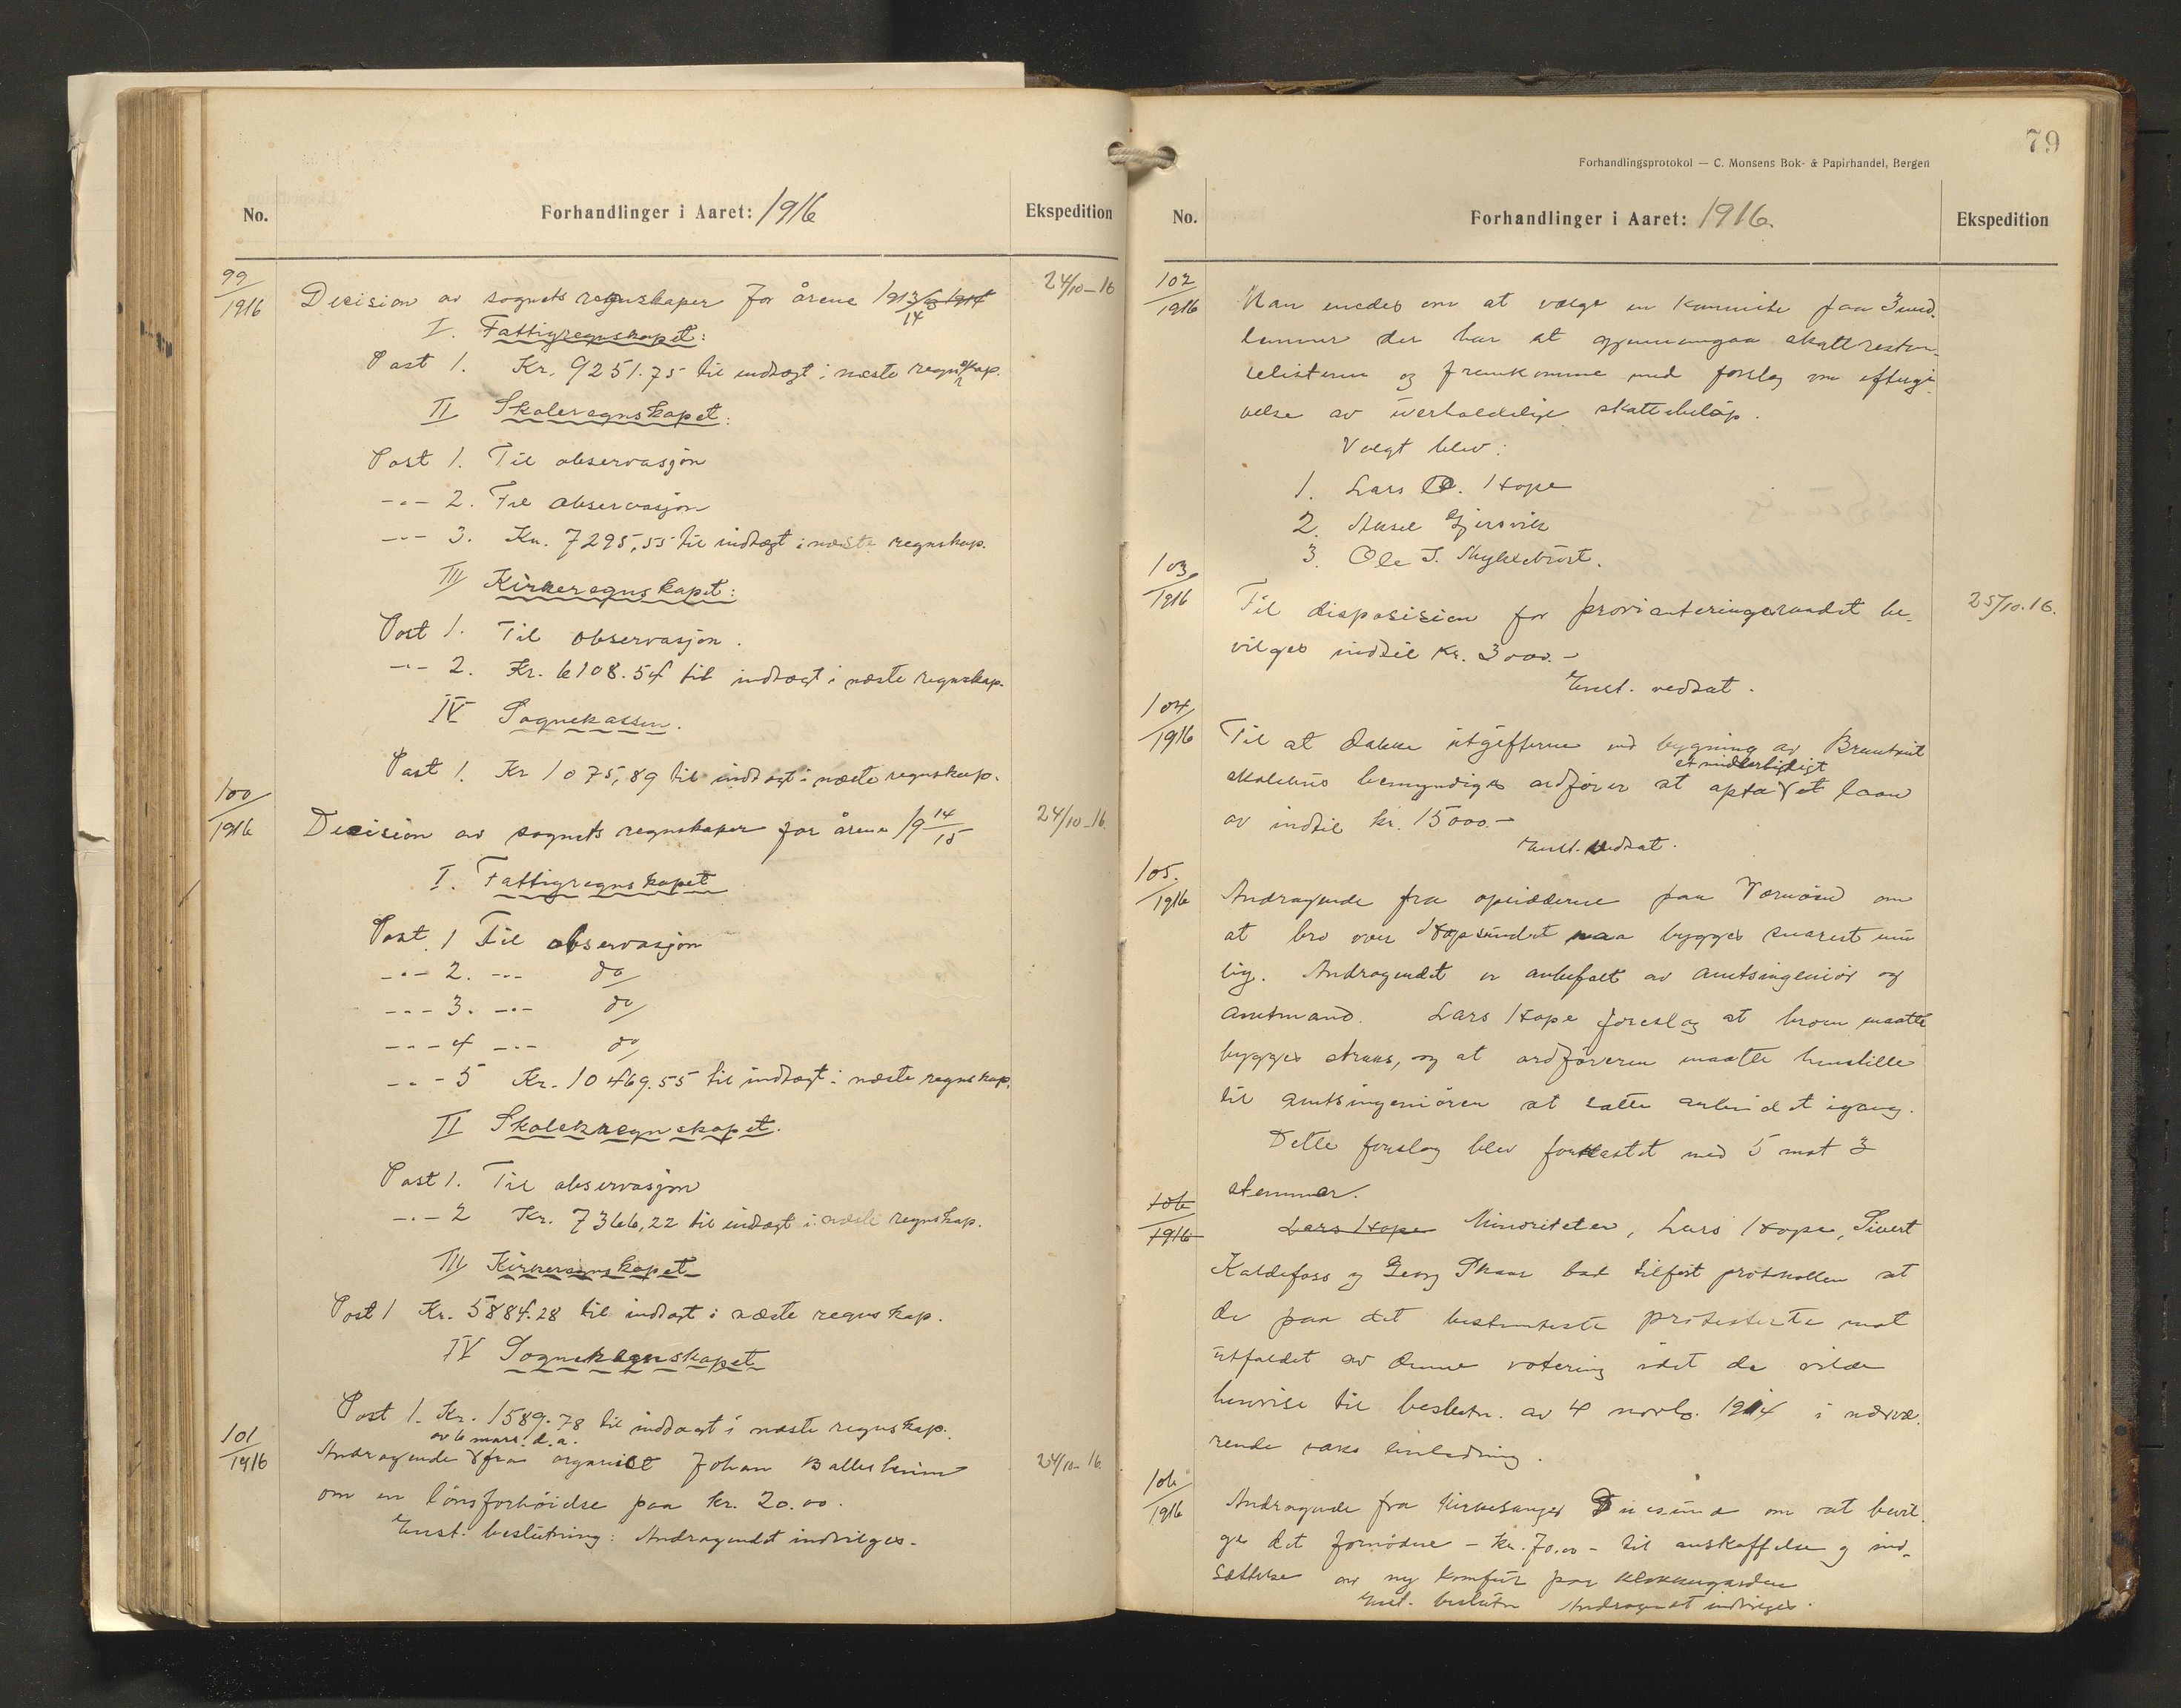 No.
Forhandlinger i Aaret: 1916
Ekspedition
99/1916
Decision av sognets regnskaper for årene 1913/14
24/10-16
I. Fattigregnskapet:
Post 1. Kr. 9251.75 til indtægt i næste regnskap.
II Skoleregnskapet:
Post 1. Til observasjon
-"- 2. Til observasjon
-"- 3. Kr. 7295,55 til indtægt i næste regnskap.
III Kirkeregnskapet:
Post 1. Til observasjon.
-"- 2. Kr. 6108.54 til indtægt i næste regnskap.
IV Sognekassen.
Post 1. Kr 1075,89 til indtægt i næste regnskap.
100/1916
Decision av sognets regnskaper for årene 19 14/15
24/10-16.
I. Fattigregnskapet
Post 1 Til observasjon
-"- 2. -"- do
-"- 3. -"- do
-"- 4 -"- do
-"- 5 Kr. 10469.55 til indtægt i næste regnskap.
II Skoleregnskapet.
Post 1. Til observasjon
-"- 2 Kr. 7366,22 til indtægt i næste regnskap.
III Kirkeregnskapet
Post 1 Kr. 5884.28 til indtægt i næste regnskap.
IV Sogneregnskapet
Post 1. Kr. 1589.78 til indtægt i næste regnskap.
101/1916
av 6 mars. d.a.
Andragende fra organist Johan Ballesheim
24/10-16.
om en lönsforhöidse paa kr. 20.00.
Enst. beslutning: Andragendet indvilges.
79
Forhandlingsprotokol — C. Monsens Bok- & Papirhandel, Bergen
No.
Forhandlinger i Aaret: 1916.
Ekspedition
102/1916
Man enedes om at vælge en komite paa 3 med-
lemmer der har at gjennemgaa skatterestan-
selisterne og fremkomme med forslag om eftergi-
velse av uerholdelige skattebeløp.
Valgt blev:
1. Lars O. Hope
2. Aksel Gjersvik
3. Ole J. Myksetvöst.
103/1916
Til disposision for provianteringsraadet be-
25/10.16.
vilges indtil kr. 3000.-
Enst. vedtat.
104/1916
Til at dække utgifterne ved bygning av Brauteset
et midlertidigt
skolehus bemyndiges ordförer at opta et laan
av indtil kr. 15000.-
Enst. vedtat.
105./1916
Andragende fra opsidderne paa Værnøen om
at bro over Hopsundet maa bygges snarest mu
lig. Andragendet er anbefalt av amtsingeniör og
amtmand. Lars Hope foreslog at broen maatte
bygges straks, og at ordföreren maatte henstille
til amtsingeniören at sætte arbeidet igang.
Dette forslag blev forkastet med 5 mot 3
stemmer.
106/1916
Lars Hope Minoriteten, Lars Hope, Sivert
Kaldefoss og Georg Skaar bad tilført protokollen at
de paa det bestemteste protesterte mot
utfaldet av denne votering idet de vilde
henvise til beslutn. av 4 novb. 1914 i nærvæ-
rende saks anledning.
106/1916
Andragende fra kirkesanger Duesund om at bevil-
ge det fornødne - kr. 70.00 - til anskaffelse og ind-
sættelse av ny komfür paa klokkergarden
Enst. beslutn Andragendet indvilges.